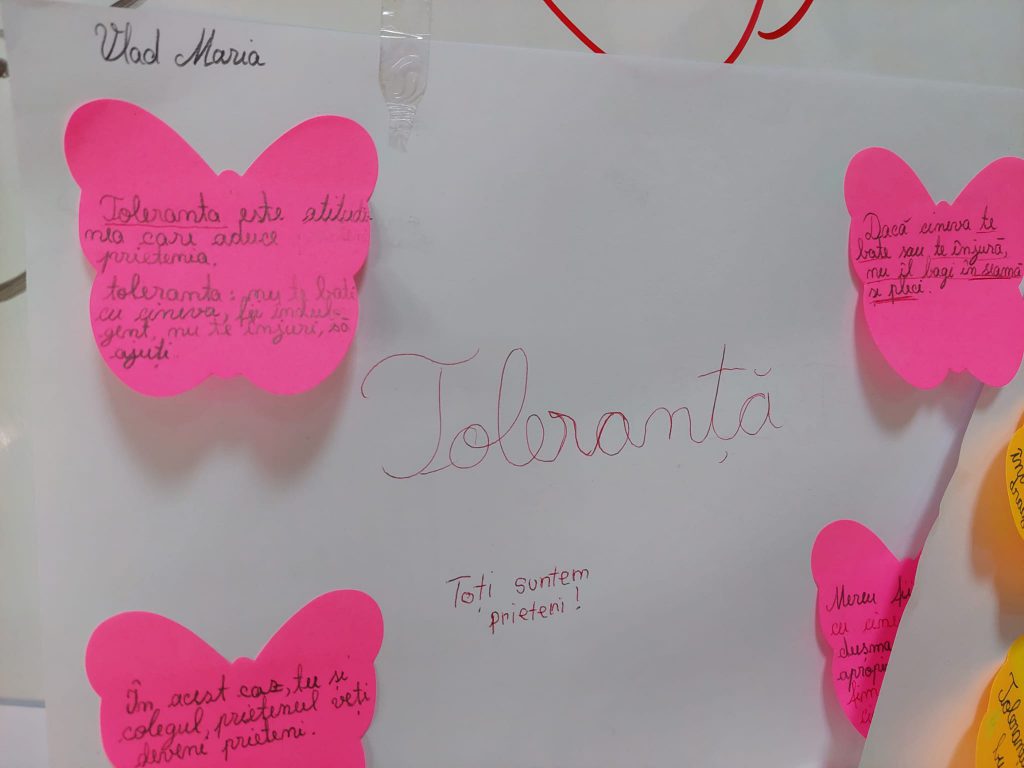 Vlad Maria
Toleranta este atitudi-
nea cari aduce
prietenia.
toleranta: nu te bate
cu cineva, fii indul-
gent, nu te înjuri, să
ajuți
Dacă cineva te
bate sau te înjură,
nu îl bagi în seamă
și pleci.
Toleranță
Toți suntem
prieteni!
În acest caz, tu si
colegul, prietenul veți
deveni prieteni.
Mereu fii
cu cine
dusma
apropi